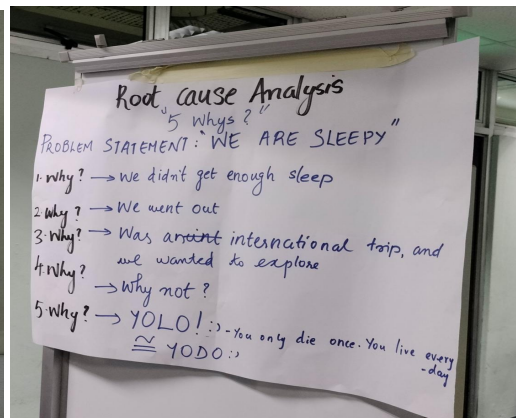 Root cause Analysis
"5 Whys?"
PROBLEM STATEMENT: "WE ARE SLEEPY"
1. Why? → We didn't get enough sleep
2. Why? → We went out
3. Why? → Was an international trip, and
we wanted to explore
4. Why? → Why not?
5. Why? → YOLO! :) - You only die once. You live every
-day
≅ YODO :)